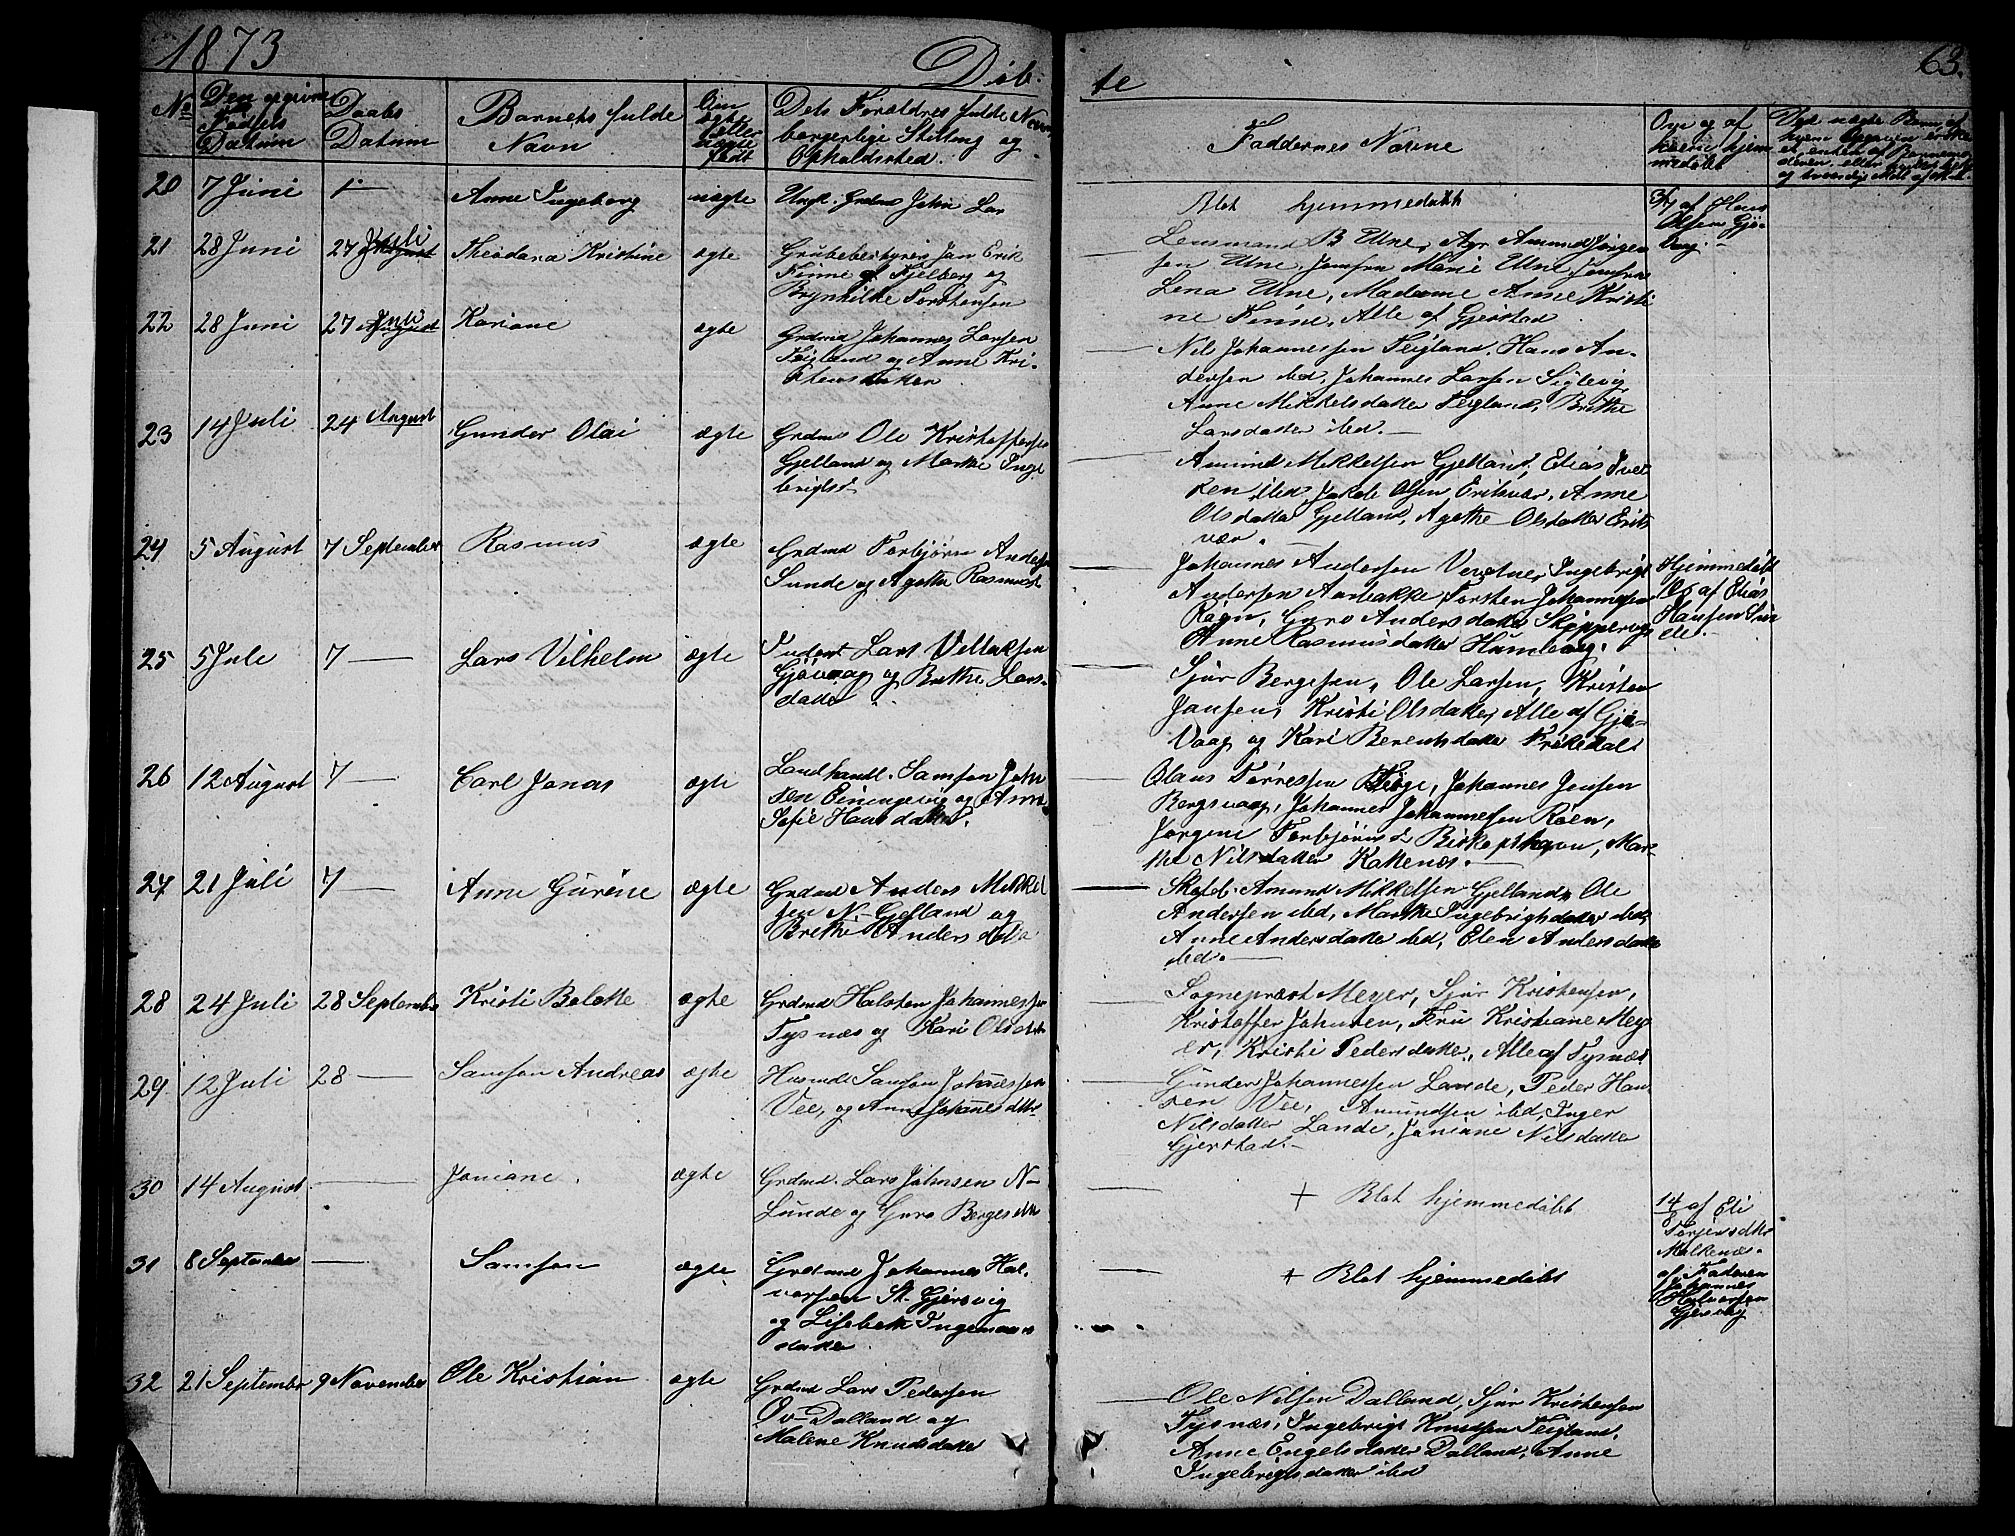 1873
Döb-
te
63.
No
Den opgivne
Fødsels
Datum
Daabs
Datum
Barnets fulde
Navn
Om
ægte
eller
uægte
født
Dets Forældres fulde Navn
borgerlige Stilling og
Opholdssted.
Faddernes Navne
Om og af
hvem hjem-
medöbt
20 7 Juni
Anne Ingeborg
uægte
Ungk. Grdmd John Lar
Blot hjemmedöbt
af Hans
Olsen Gjö-
vaag.
21 28 Juni
27 Juli
Theodora Kristine
ægte
Grubebestyrer Jan Erik
Finne af Fjelberg og
Brynhilde Torstensen
Lensmand B Une, Agr. Amund Jörgen
sen Une, Jomfru Marie Une, Jomfru
Lena Une, Madame Anne Kristi
ne Finne, Alle af Gjerstad
22 28 Juni
27 Juli
Kariane
ægte
Grdmd Johannes Larsen
Teigland og Anne Kri-
stensdatter
Nils Johannessen Teigland, Hans An-
dersen ibd, Johannes Larsen Siglevig
Anne Mikkelsdatter Teigland, Brithe
Larsdatter ibd.
23 14 Juli
24 August
Gunder Olai
ægte
Grdmd Ole Kristoffersen
Gjelland og Marthe Inge
brigtsd
Amund Mikkelsen Gjelland, Elias Iver
sen ibd, Jakob Olsen Erikvær, Anne
Olsdatter Gjelland, Agathe Olsdatter Eriks
vær.
24 5 August
7 September
Rasmus
ægte
Grdmd Torbjörn Anders
Sunde og Agathe Rasmusd
Johannes Andersen Vevetne, Ingebrigt
Andersen Aarbakke, Torsten Johannesen
Röen, Guro Andersdatter Skippervig
Anne Rasmusdatter Humborg.
Hjemmedöbt
af Elias
Hansen Sun
de.
25 5 Juli
7
Lars Vilhelm
ægte
Inderst Lars Villaksen
Gjövaag og Brithe Lars-
datter
Sjur Bergesen, Ole Larsen, Kristen
Jansen, Kristi Olsdatter, Alle af Gjö-
vaag og Kari Berentsdatter Frökedal
26 12 August
7
Carl Jonas
ægte
Landhandl. Samson John
sen Einingevig og Anne
Sofie Hansdatter.
Olaus Torressen Teige, Johannes Jensen
Bergsvaag, Johannes Johannessen Röen,
Jörgeni Torbjörnsd Biskopshavn, Mar-
the Nilsdatter Kattenes.
27 21 Juli
7
Anne Gurine
ægte
Grdmd Anders Mikkel
sen N. Gjelland og
Brithe Andersdatter
Skoleb. Amund Mikkelsen Gjelland, Ole
Andersen ibd, Marthe Ingebrigtsdatter ibd,
Anne Andersdatter ibd, Elen Andersdatter
ibd.
28 24 Juli
28 September
Kristi Belette
ægte
Grdmd Halsten Johannessen
Tysnæs og Kari Olsdatter
Sogneprest Meyer, Sjur Kristensen,
Kristoffer Johnsen, Fru Kristiane Mey
er, Kristi Pedersdatter, Alle af Tysnæs
29 12 Juli
28
Samson Andreas
ægte
Husmd Samson Johannessen
Vee, og Anne Johannesdtr
Gunder Johannessen Lande, Peder Han
sen Vee, Amundsen ibd, Inger
Nilsdatter Lande, Janiane Nilsdatter
Gjerstad.
30 14 August
Janiane.
ægte
Grdmd. Lars Johnsen N-
Lunde og Guro Bergesdtr
+ Blot hjemmedöbt
14/8 af Eli
Torjersdtr
Malkenæs.
31 8 September
Samson
ægte
Grdmd Johannes Hal-
vorsen St. Gjersvig
og Lisebeth Ingemanns
datter
+ Blot hjemmedöbt
af Faderen
Johannes
Halvorsen
Gjersvig
32 21 September
9 November
Ole Kristian
ægte
Grdmd Lars Pedersen
Öv-Dalland og
Malene Knudsdatter
Ole Nilsen Dalland, Sjur Kristensen
Tysnæs, Ingebrigt Knudsen Teigland,
Anne Engelsdatter Dalland, Anne
Ingebrigtsdatter ibd